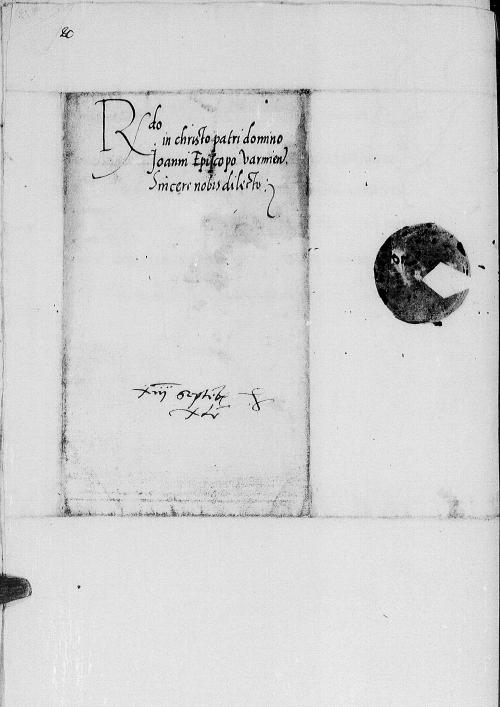 80
Rdo
in christo patri domino
Joanni Episcopo Varmien.
Sincere nobis dilecto
xiii Septēb